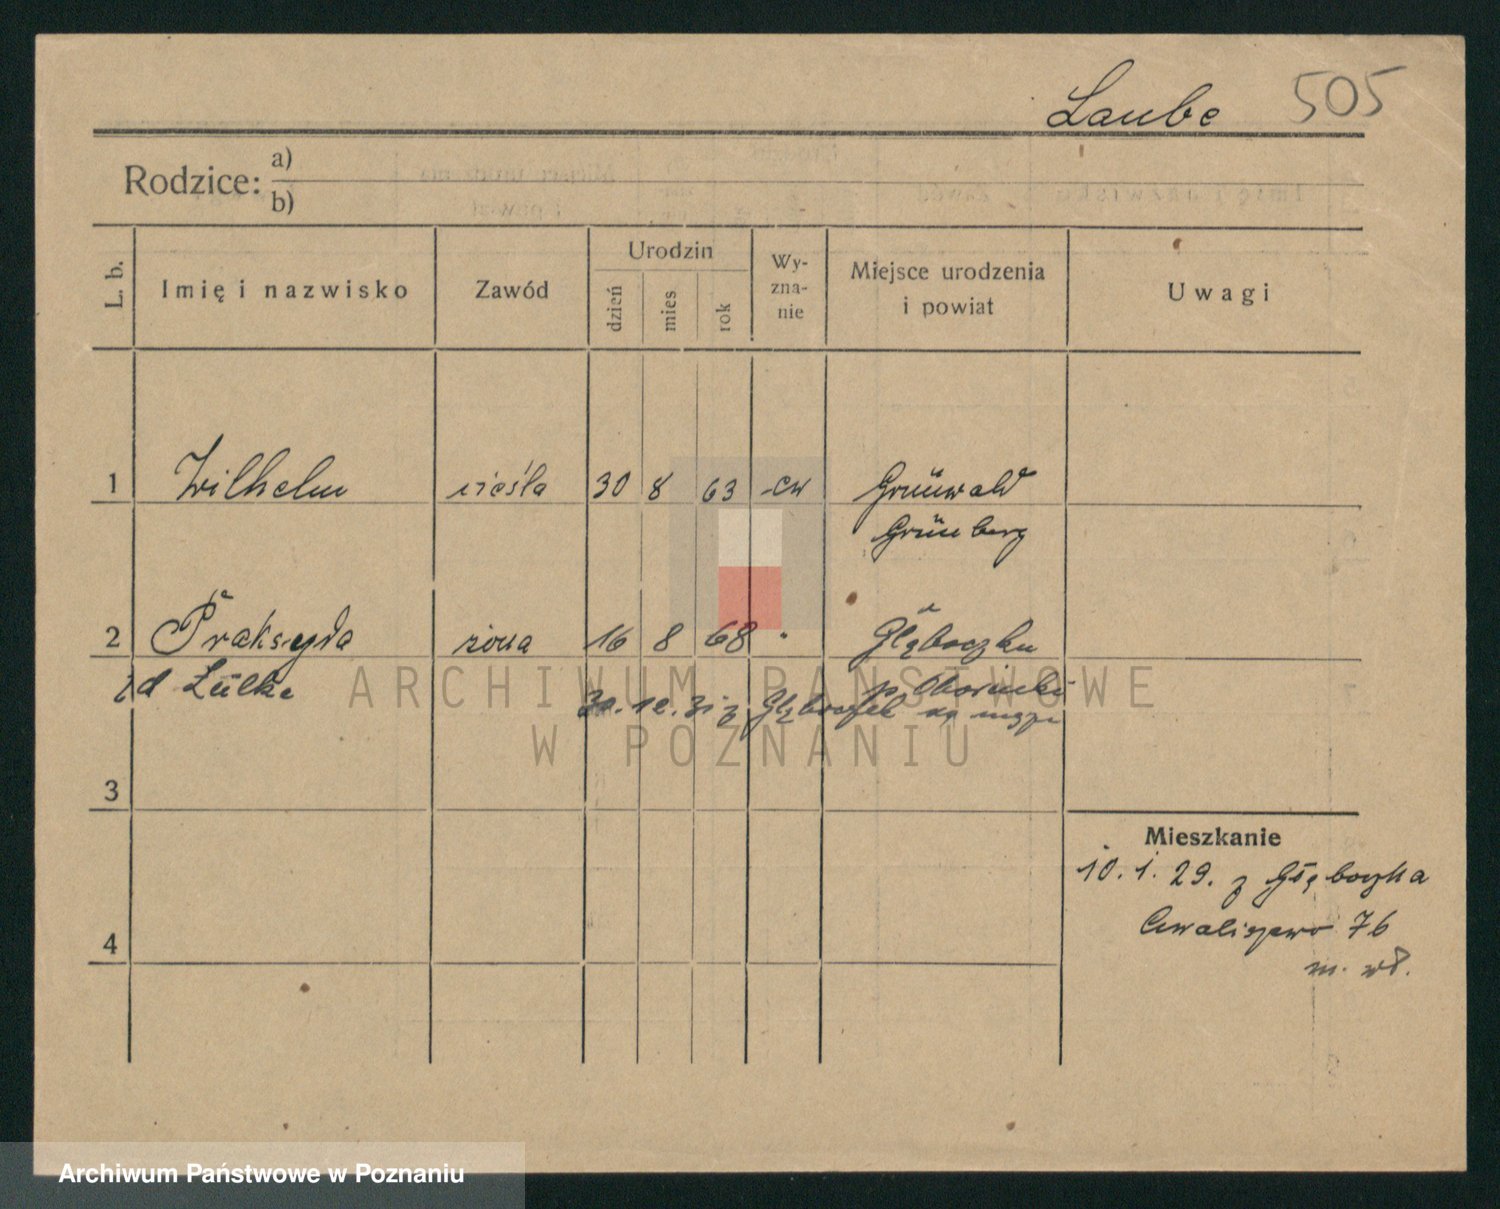 Laube 505
Rodzice: a)
b)
L. b. Imię i nazwisko Zawód Urodzin dzień mies rok Wyznanie Miejsce urodzenia i powiat Uwagi
1 Wilhelm cieśla 30 8 63 ew Grünwald
Grünberg
2 Praksyda żona 16 8 68 " Głęboczku
zd Lülke p. Obornicki
30. 12. 31 z Głęboczek
3
Mieszkanie
10. 1. 29. z Głęboczka
4 Chwaliszewo 76
m. wł.
ARCHIWUM PAŃSTWOWE
W POZNANIU
Archiwum Państwowe w Poznaniu